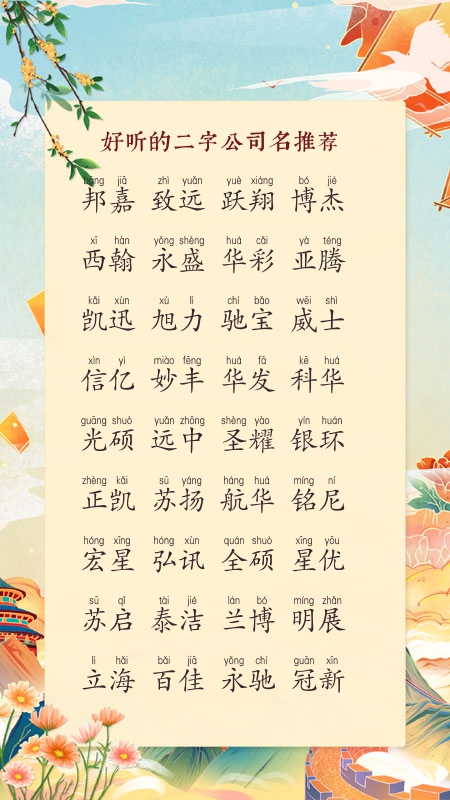 好听的二字公司名推荐
bāng jiā zhì yuǎn yuè xiáng bó jié
邦嘉 致远 跃翔 博杰
xī hàn yǒng shèng huá cǎi yà téng
西翰 永盛 华彩 亚腾
kǎi xùn xù lì chí bǎo wēi shì
凯迅 旭力 驰宝 威士
xìn yì miào fēng huá fā kē huá
信亿 妙丰 华发 科华
guāng shuò yuǎn zhōng shèng yào yín huán
光硕 远中 圣耀 银环
zhèng kǎi sū yáng háng huá míng ní
正凯 苏扬 航华 铭尼
hóng xīng hóng xùn quán shuò xīng yōu
宏星 弘讯 全硕 星优
sū qǐ tài jié lán bó míng zhǎn
苏启 泰洁 兰博 明展
lì hǎi bǎi jiā yǒng chí guān xīn
立海 百佳 永驰 冠新